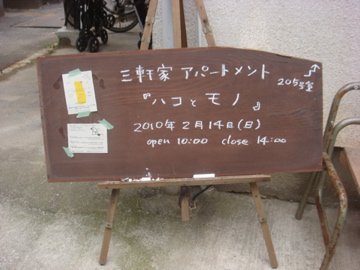 三軒家アパートメント
205号室
『ハコとモノ』
2010年2月14日(日)
open 10:00 close 14:00